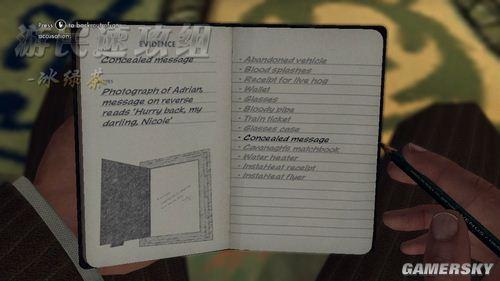 Press to back out of an
accusation.
游民速攻组
-冰绿茶
EVIDENCE
Concealed message
NOTES
Photograph of Adrian,
message on reverse
reads 'Hurry back, my
darling, Nicole'
- Abandoned vehicle
- Blood splashes
- Receipt for live hog
- Wallet
- Glasses
- Bloody pipe
- Train ticket
- Glasses case
- Concealed message
- Cavanagh's matchbook
- Water heater
- InstaHeat receipt
- InstaHeat flyer
GAMERSKY